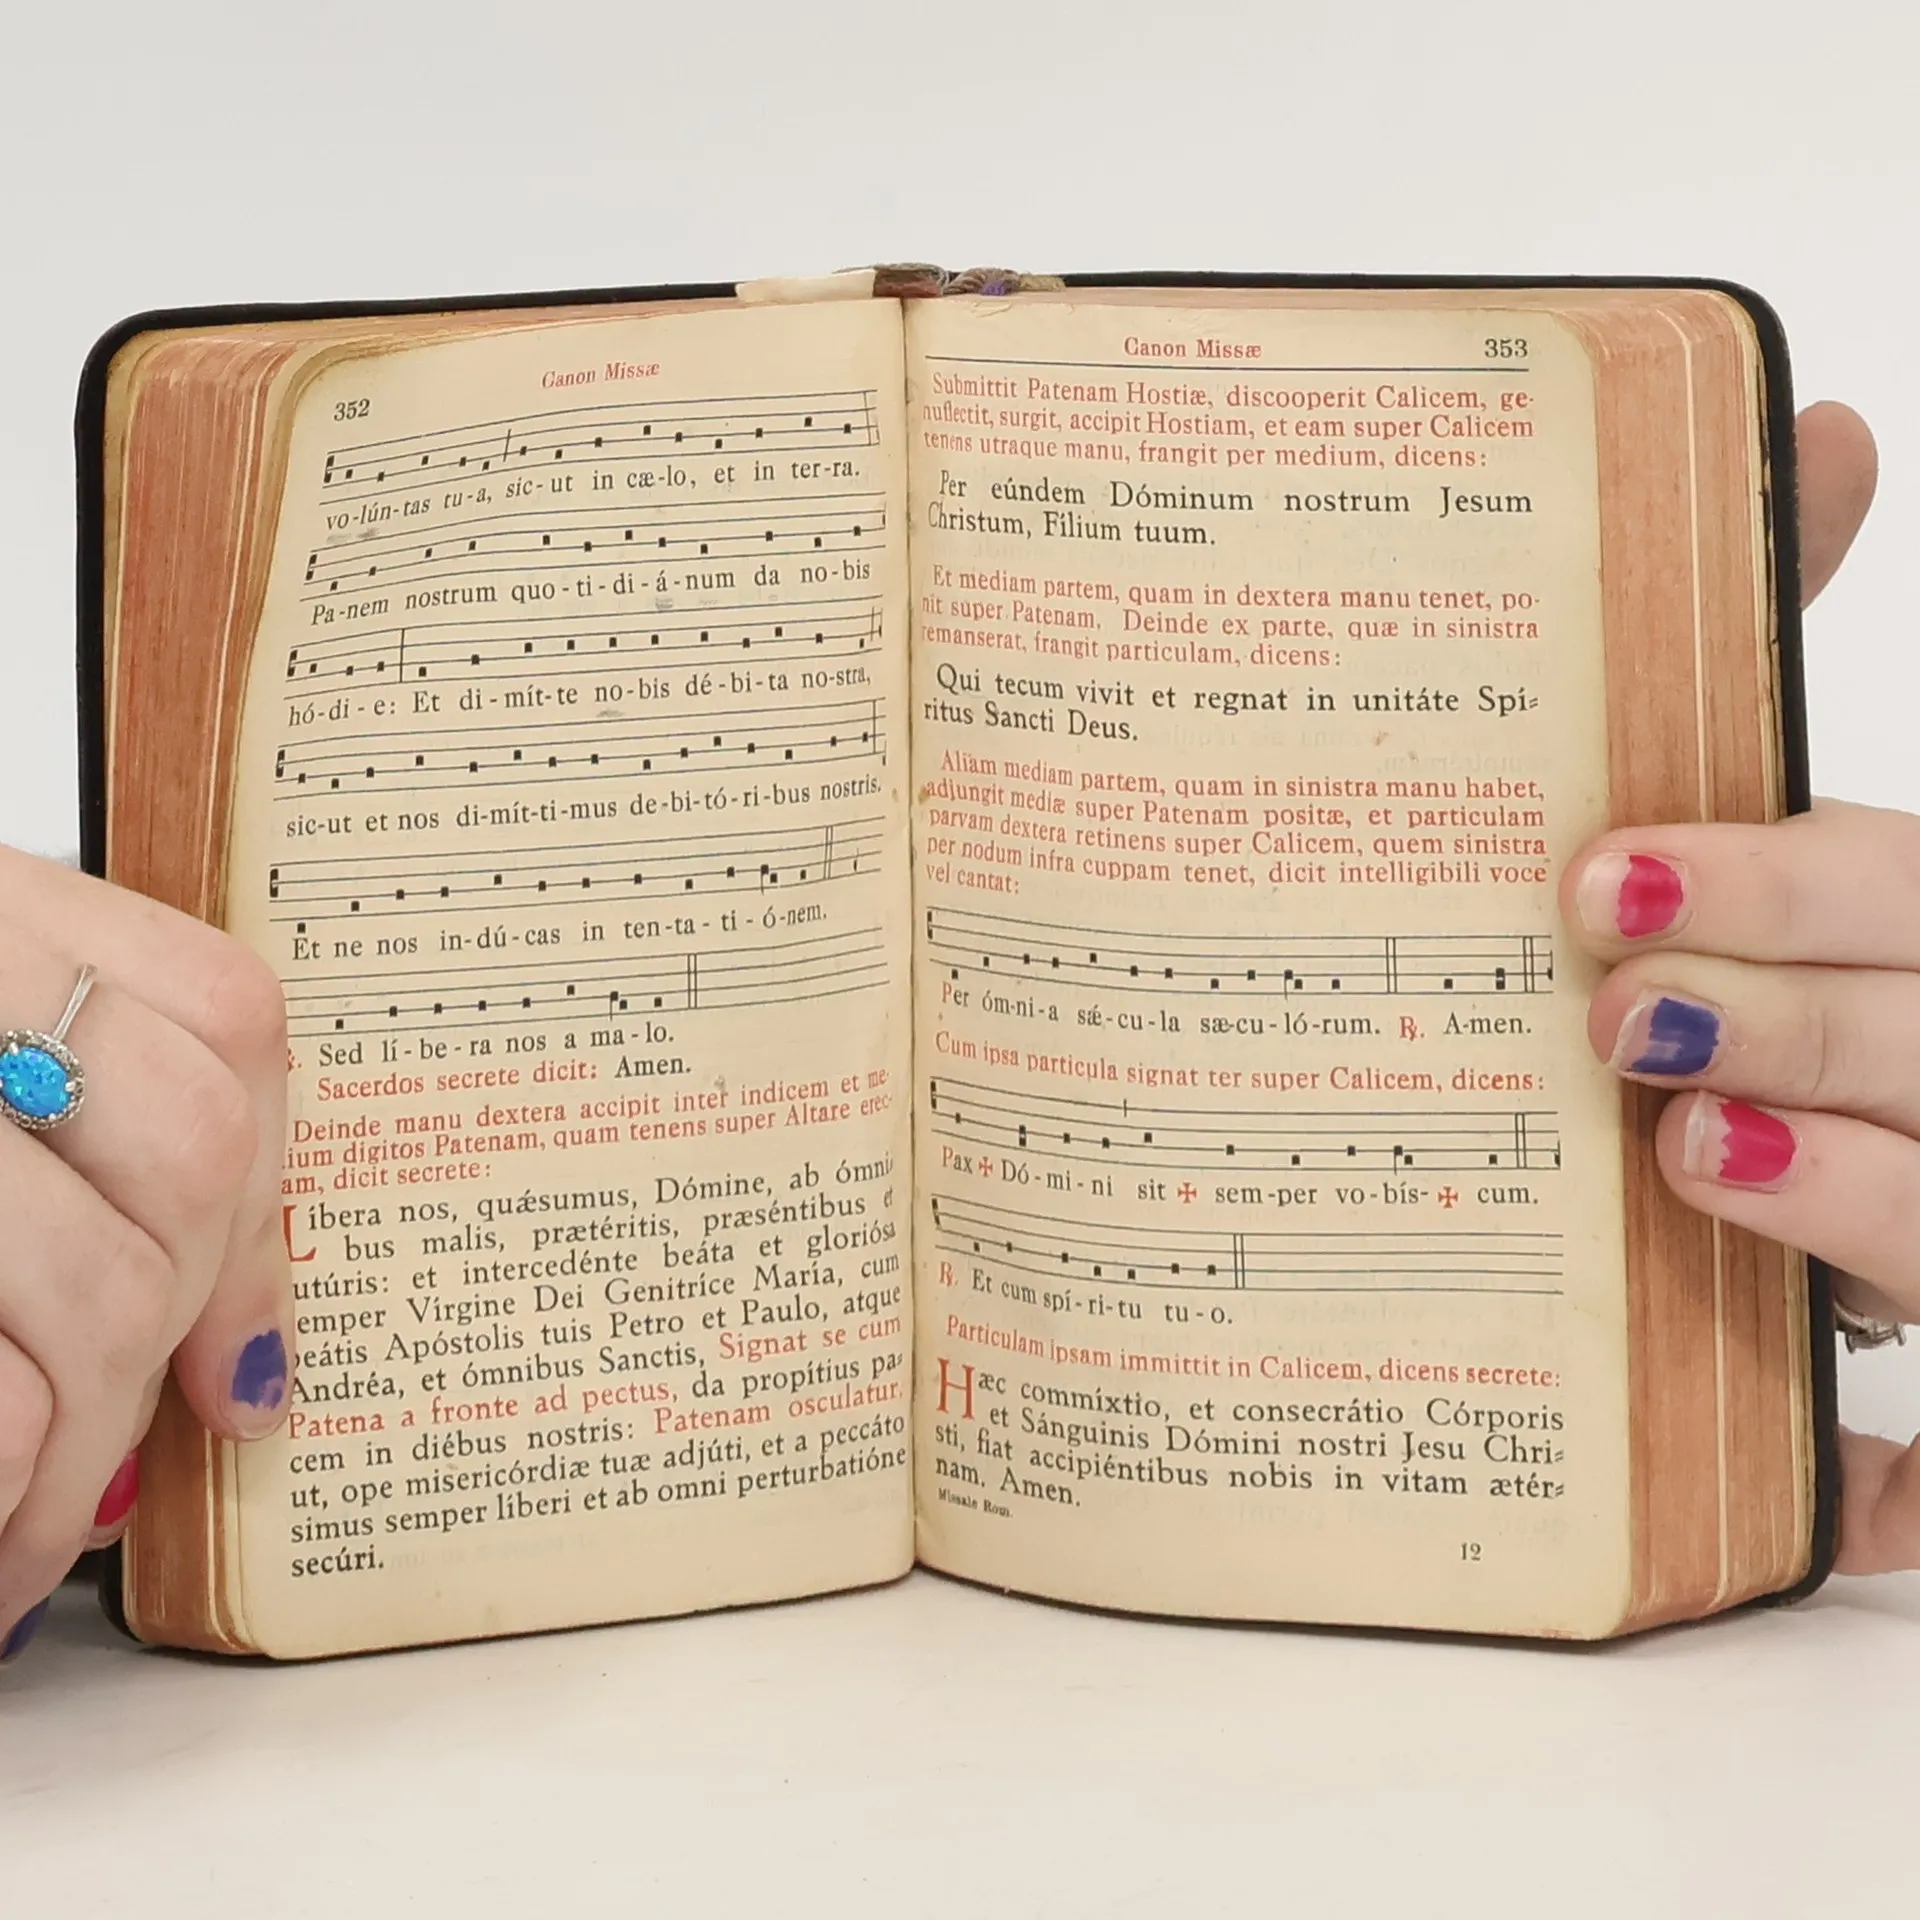 352
Canon Missæ
vo-lún-tas tu-a, sic-ut in cæ-lo, et in ter-ra.
Pa-nem nostrum quo-ti-di-á-num da no-bis
hó-di-e: Et di-mít-te no-bis dé-bi-ta no-stra,
sic-ut et nos di-mít-ti-mus de-bi-tó-ri-bus nostris.
Et ne nos in-dú-cas in ten-ta-ti-ó-nem.
℟. Sed lí-be-ra nos a ma-lo.
Sacerdos secrete dicit: Amen.
Deinde manu dextera accipit inter indicem et me-
ium digitos Patenam, quam tenens super Altare erec-
am, dicit secrete:
Líbera nos, quǽsumus, Dómine, ab ómni
bus malis, prætéritis, præséntibus et
utúris: et intercedénte beáta et gloriósa
emper Vírgine Dei Genitríce María, cum
eátis Apóstolis tuis Petro et Paulo, atque
Andréa, et ómnibus Sanctis, Signat se cum
Patena a fronte ad pectus, da propítius pa=
cem in diébus nostris: Patenam osculatur,
ut, ope misericórdiæ tuæ adjúti, et a peccáto
simus semper líberi et ab omni perturbatióne
secúri.
Canon Missæ 353
Submittit Patenam Hostiæ, discooperit Calicem, ge-
nuflectit, surgit, accipit Hostiam, et eam super Calicem
tenens utraque manu, frangit per medium, dicens:
Per eúndem Dóminum nostrum Jesum
Christum, Fílium tuum.
Et mediam partem, quam in dextera manu tenet, po-
nit super Patenam. Deinde ex parte, quæ in sinistra
remanserat, frangit particulam, dicens:
Qui tecum vivit et regnat in unitáte Spí=
ritus Sancti Deus.
Aliam mediam partem, quam in sinistra manu habet,
adjungit mediæ super Patenam positæ, et particulam
parvam dextera retinens super Calicem, quem sinistra
per nodum infra cuppam tenet, dicit intelligibili voce
vel cantat:
Per óm-ni-a sǽ-cu-la sæ-cu-ló-rum. ℟. A-men.
Cum ipsa particula signat ter super Calicem, dicens:
Pax ✠ Dó-mi-ni sit ✠ sem-per vo-bís- ✠ cum.
℟. Et cum spí-ri-tu tu-o.
Particulam ipsam immittit in Calicem, dicens secrete:
Hæc commíxtio, et consecrátio Córporis
et Sánguinis Dómini nostri Jesu Chri=
sti, fiat accipiéntibus nobis in vitam ætér=
nam. Amen.
Missale Rom.
12